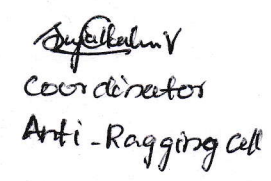 Coordinator
Anti-Ragging Cell